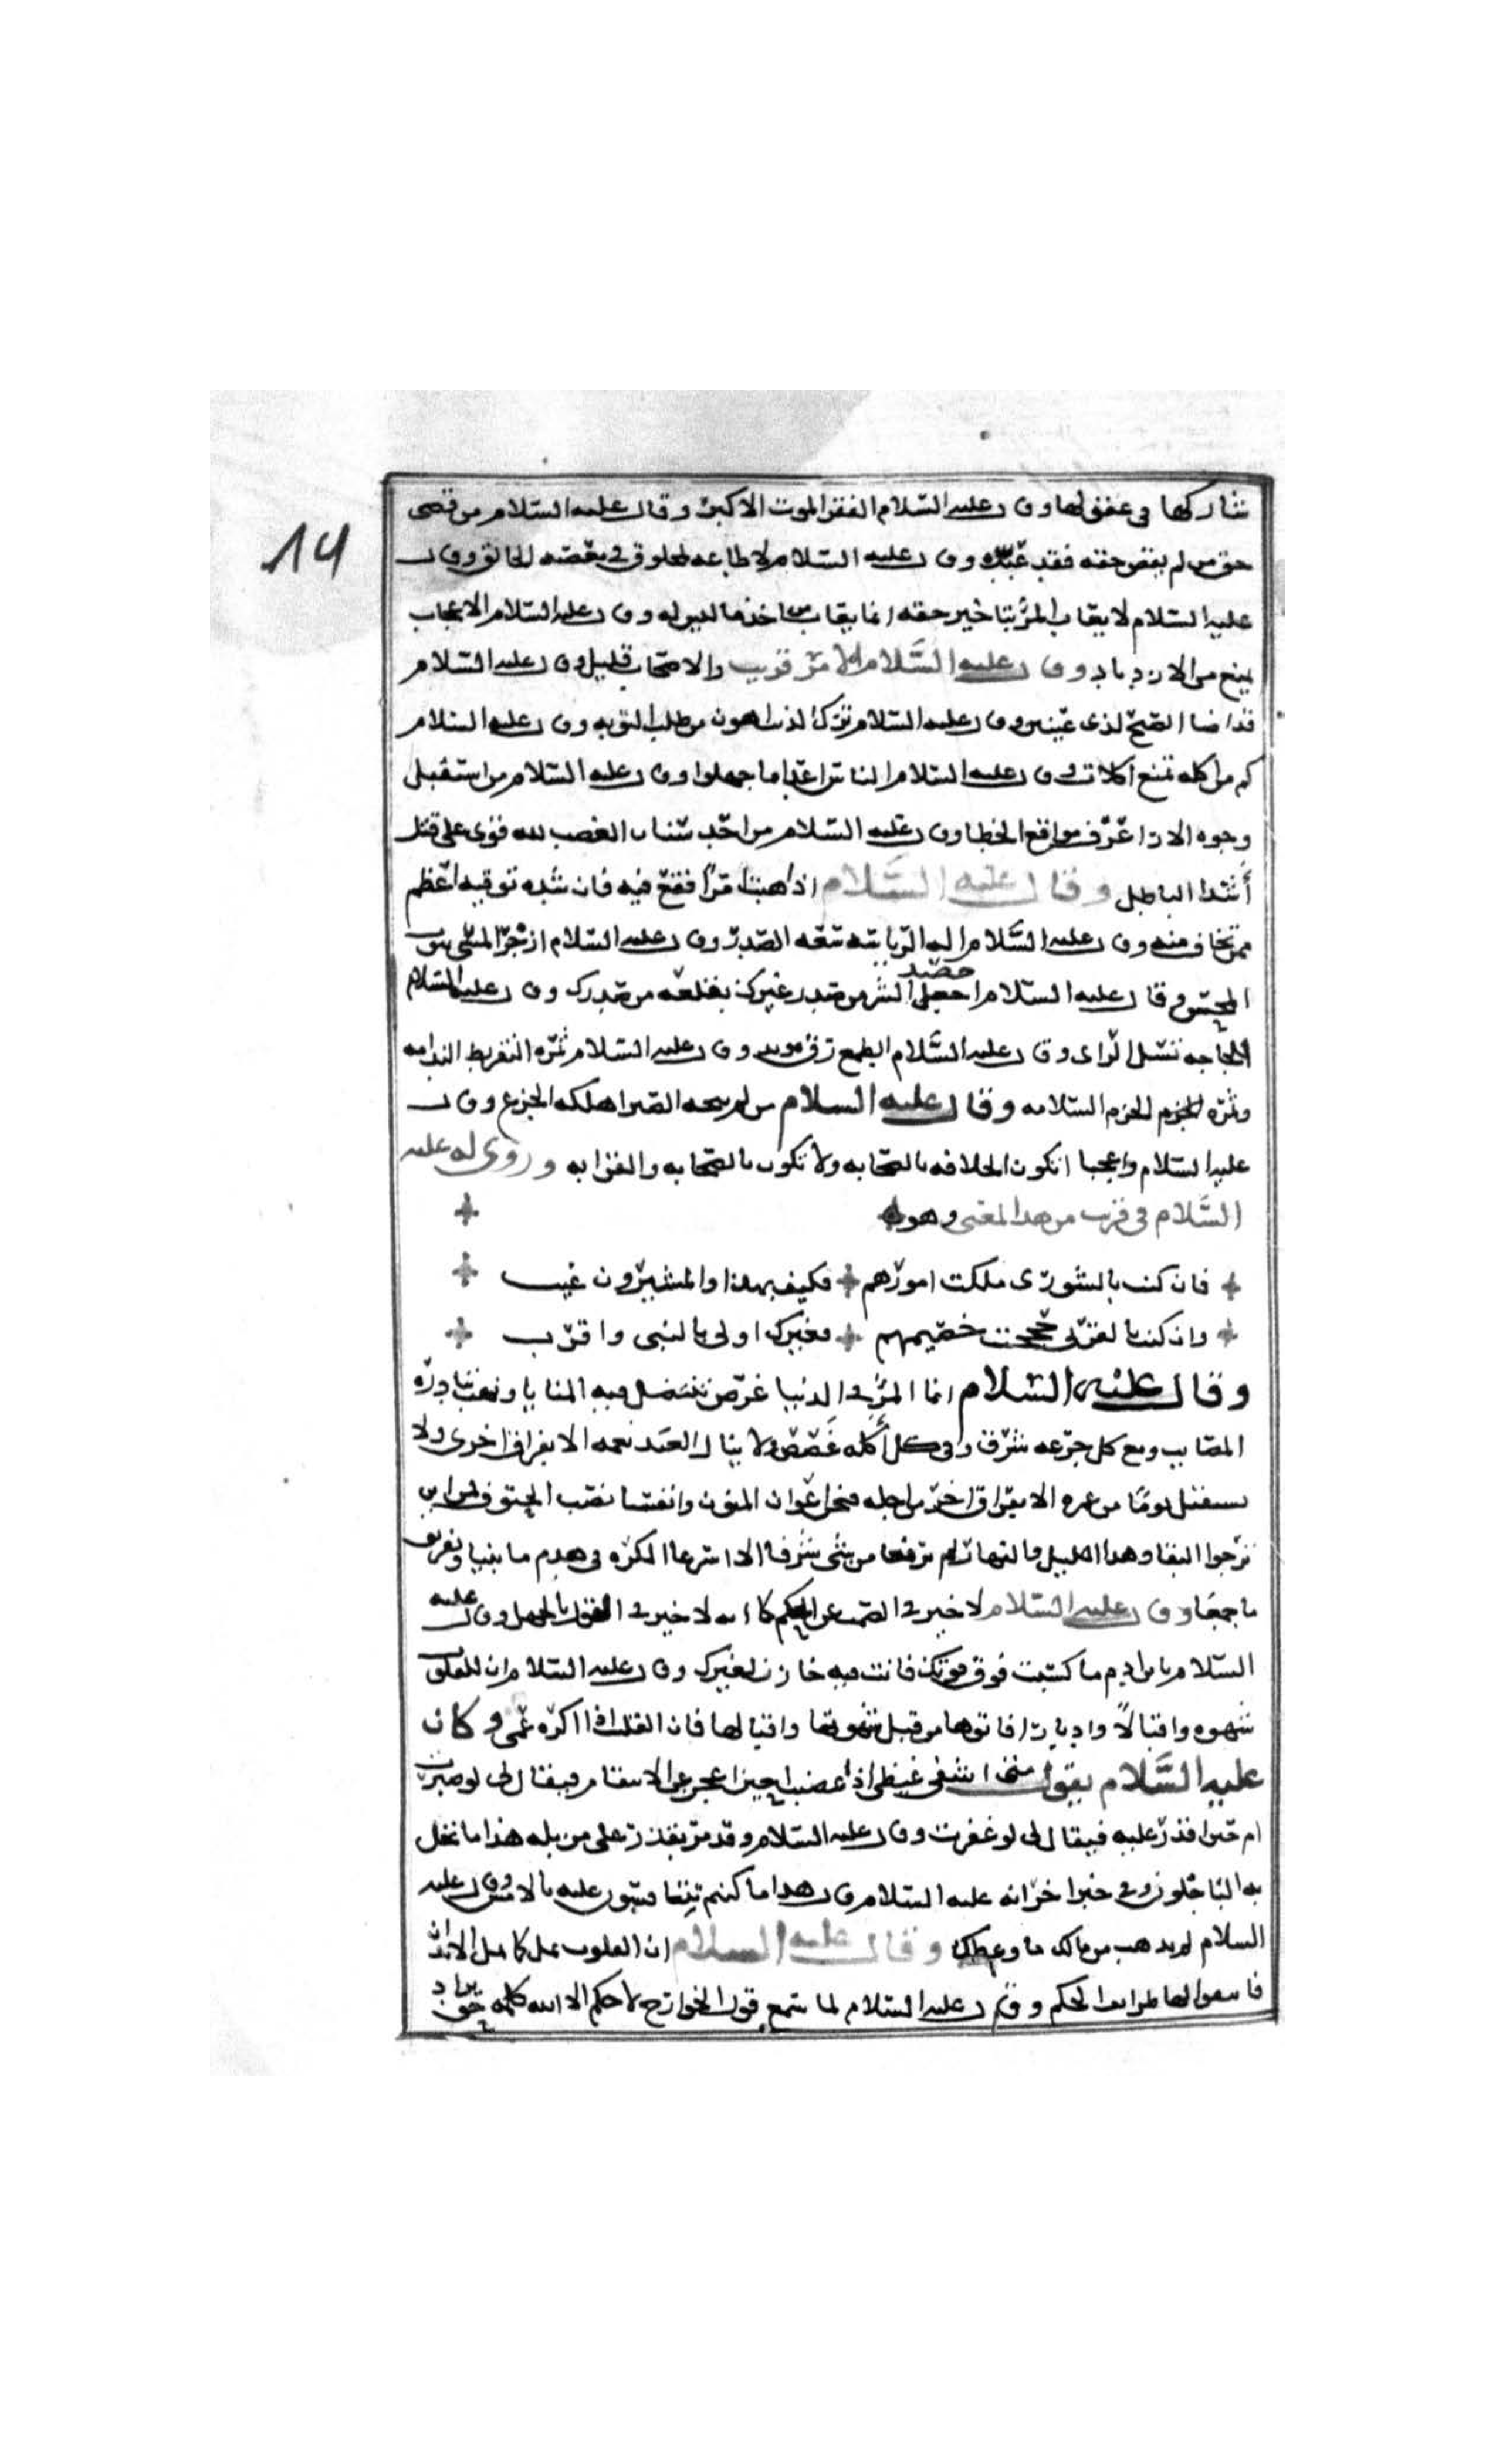 14
شاركها في عقولها وقال عليه السلام الفقر الموت الاكبر وقال عليه السلام من قضى
حق من لم يقض حقه فقد عبّده وقال عليه السلام لا طاعه لمخلوق في معصيه الخالق وقال
عليه السلام لا يعاب المرء بتاخير حقه انما يعاب من اخذ ما ليس له وقال عليه السلام الاعجاب
يمنع من الازدياد وقال عليه السلام الامر قريب والاصحاب قليل وقال عليه السلام
قد اضا الصبح لذى عينين وقال عليه السلام ترك الذنب اهون من طلب التوبه وقال عليه السلام
كم من اكله تمنع اكلات وقال عليه السلام الناس اعدا ما جهلوا وقال عليه السلام من استقبل
وجوه الارا عرف مواقع الخطا وقال عليه السلام من احد سنان الغضب لله قوى على قتل
أشدا الباطل وقال عليه السلام اذا هبت امرًا فقع فيه فان شده توقيه اعظم
مما تخاف منه وقال عليه السلام اله الرياسه سعه الصدر وقال عليه السلام ازجر المسى بثواب
المحسن وقال عليه السلام احصد الشر من صدر غيرك بقلعه من صدرك وقال عليه السلام
اللجاجه تسل الراى وقال عليه السلام الطمع رق موبد وقال عليه السلام ثمره التفريط الندامه
وثمره الحزم السلامه وقال عليه السلام من لم ينجه الصبر اهلكه الجزع وقال
عليه السلام واعجبا اتكون الخلافه بالصحابه ولا تكون بالصحابه والقرابه وروى له عليه
السلام في قريب من هذا المعنى وهو
فان كنت بالشورى ملكت امورهم فكيف بهذا والمشيرون غيب
وان كنت بالقربى حججت خصيمهم فغيرك اولى بالنبى واقرب
وقال عليه السلام انما المرء في الدنيا غرض تنتضل فيه المنايا ونهب تبادره
المصايب ومع كل جرعه شرق وفى كل أكله غصص ولا ينال العبد نعمه الا بفراق اخرى ولا
يستقبل يومًا من عمره الا بفراق اخر من اجله فنحن اعوان المنون وانفسنا نصب الحتوف فمن اين
نرجوا البقا وهذا الليل والنهار لم يرفعا من شى شرفا الا اسرعا الكره فى هدم ما بنيا وتفريق
ما جمعا وقال عليه السلام لا خير في الصمت عن الحكم كما انه لا خير في القول بالجهل وقال عليه
السلام يا بن ادم ما كسبت فوق قوتك فانت فيه خازن لغيرك وقال عليه السلام ان للقلوب
شهوه واقبالًا وادبارا فاتوها من قبل شهوتها واقبالها فان القلب اذا اكره عمى وكان
عليه السلام يقول متى اشفى غيظى اذا غضبت احين اعجز عن الانتقام فيقال لى لو صبرت
ام حين اقدر عليه فيقال لى لو غفرت وقال عليه السلام وقد مر بقذر على مزبله هذا ما بخل
به الباخلون وروى في خبر اخر انه عليه السلام قال هذا ما كنتم تتنافسون عليه بالامس وقال عليه
السلام لم يذهب من مالك ما وعظك وقال عليه السلام ان القلوب تمل كما تمل الابدان
فابتغوا لها طرايف الحكم وقال عليه السلام لما سمع قول الخوارج لا حكم الا لله كلمه حق يراد